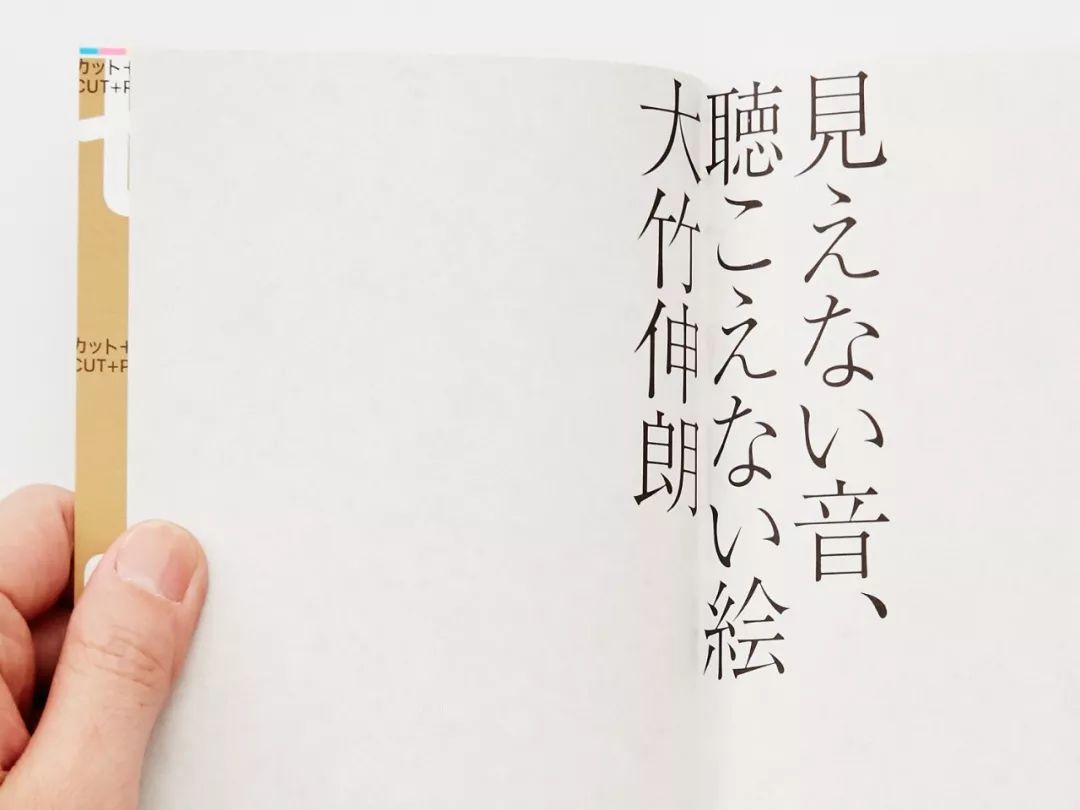 見えない音、
聴こえない絵
大竹伸朗
カット+
CUT+P
カット+
CUT+P